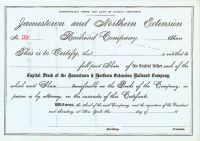 INCORPORATED UNDER THE LAWS OF NORTH DAKOTA
Jamestown and Northern Extension
Railroad Company.
No 39
Shares
This is to Certify, that is entitled to
full paid Shares of two hundred dollars each of the
Capital Stock of the Jamestown & Northern Extension Railroad Company,
which said Shares transferable on the Books of the Company, in
person or by Attorney, on the surrender of this Certificate.
Witness, the seal of the said Company, and the signatures of the President
and Secretary, at New York, this day of 18
Secretary. President.